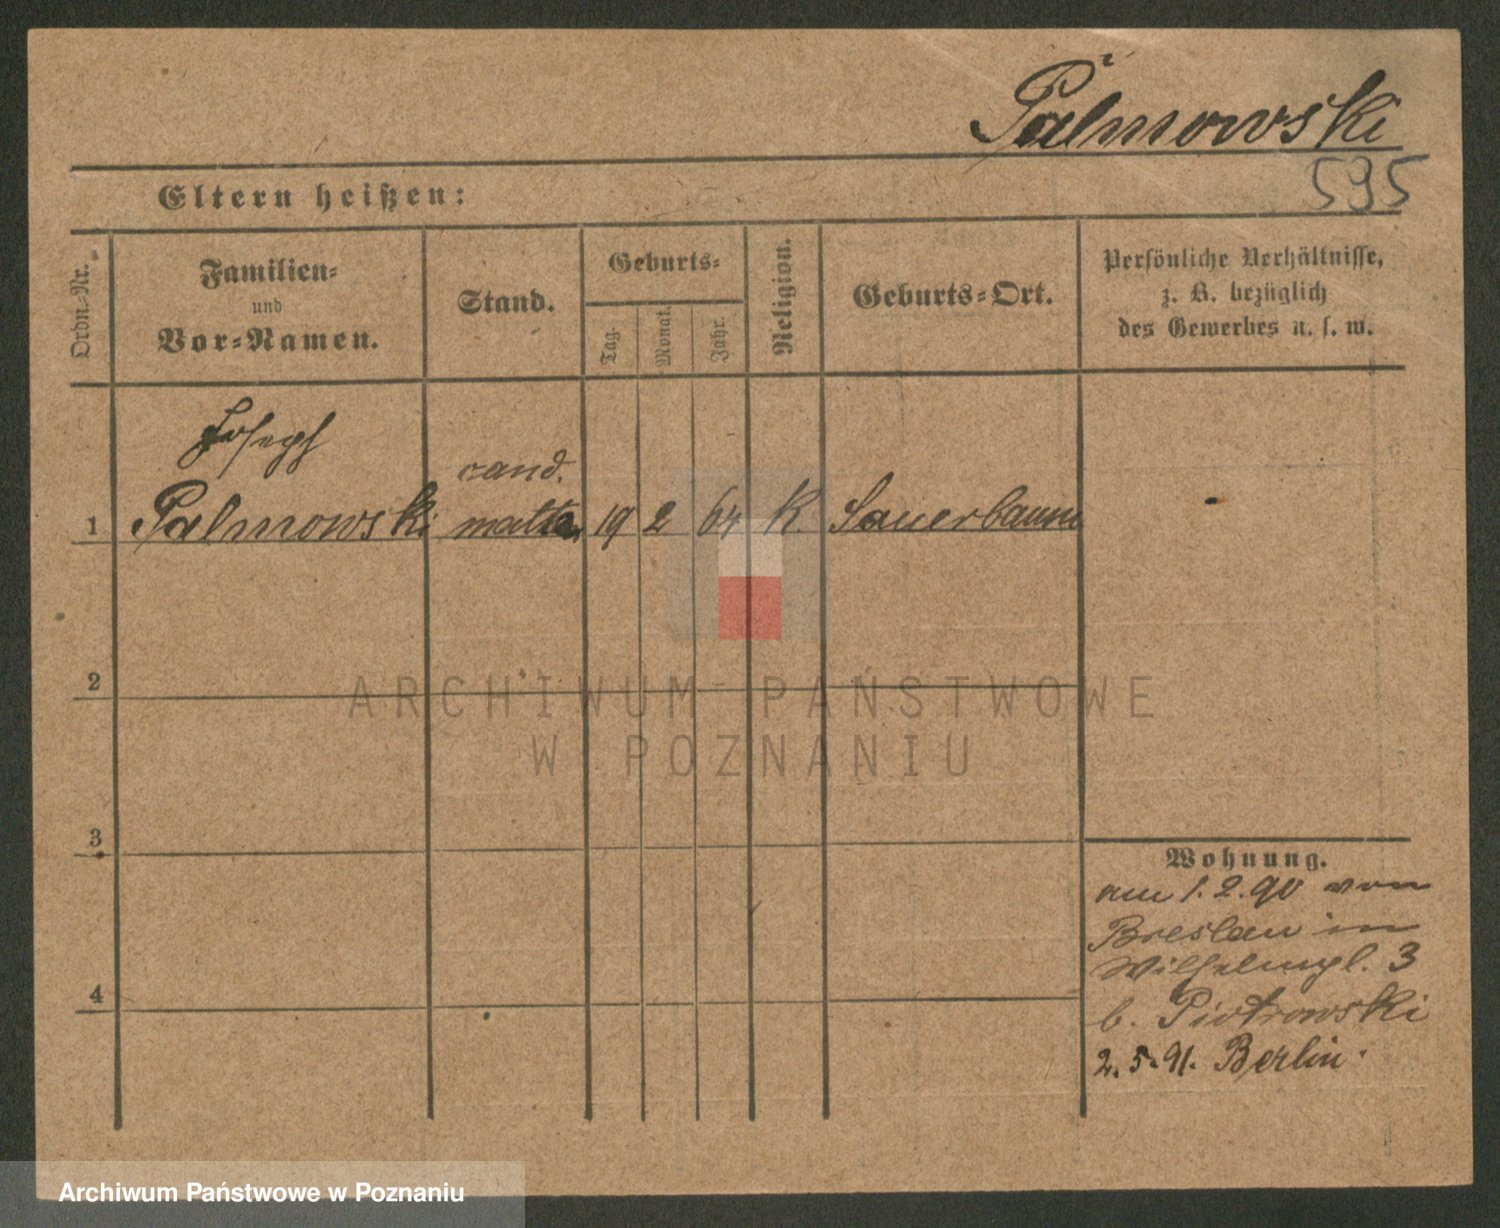 Palmowski
595
Eltern heißen:
Ordn.-Nr.
Familien-
und
Vor-Namen.
Stand.
Geburts-
Tag.
Monat.
Jahr.
Religion.
Geburts-Ort.
Persönliche Verhältnisse,
z. B. bezüglich
des Gewerbes u. s. w.
Joseph
cand.
1 Palmowski 19 2 64 K. Sauerbaum
2
3
4
Wohnung.
am 1.2.90 von
Breslau in
Wilhelmpl. 3
b. Piotrowski
2.5.91. Berlin.
ARCHIWUM PAŃSTWOWE
W POZNANIU
Archiwum Państwowe w Poznaniu